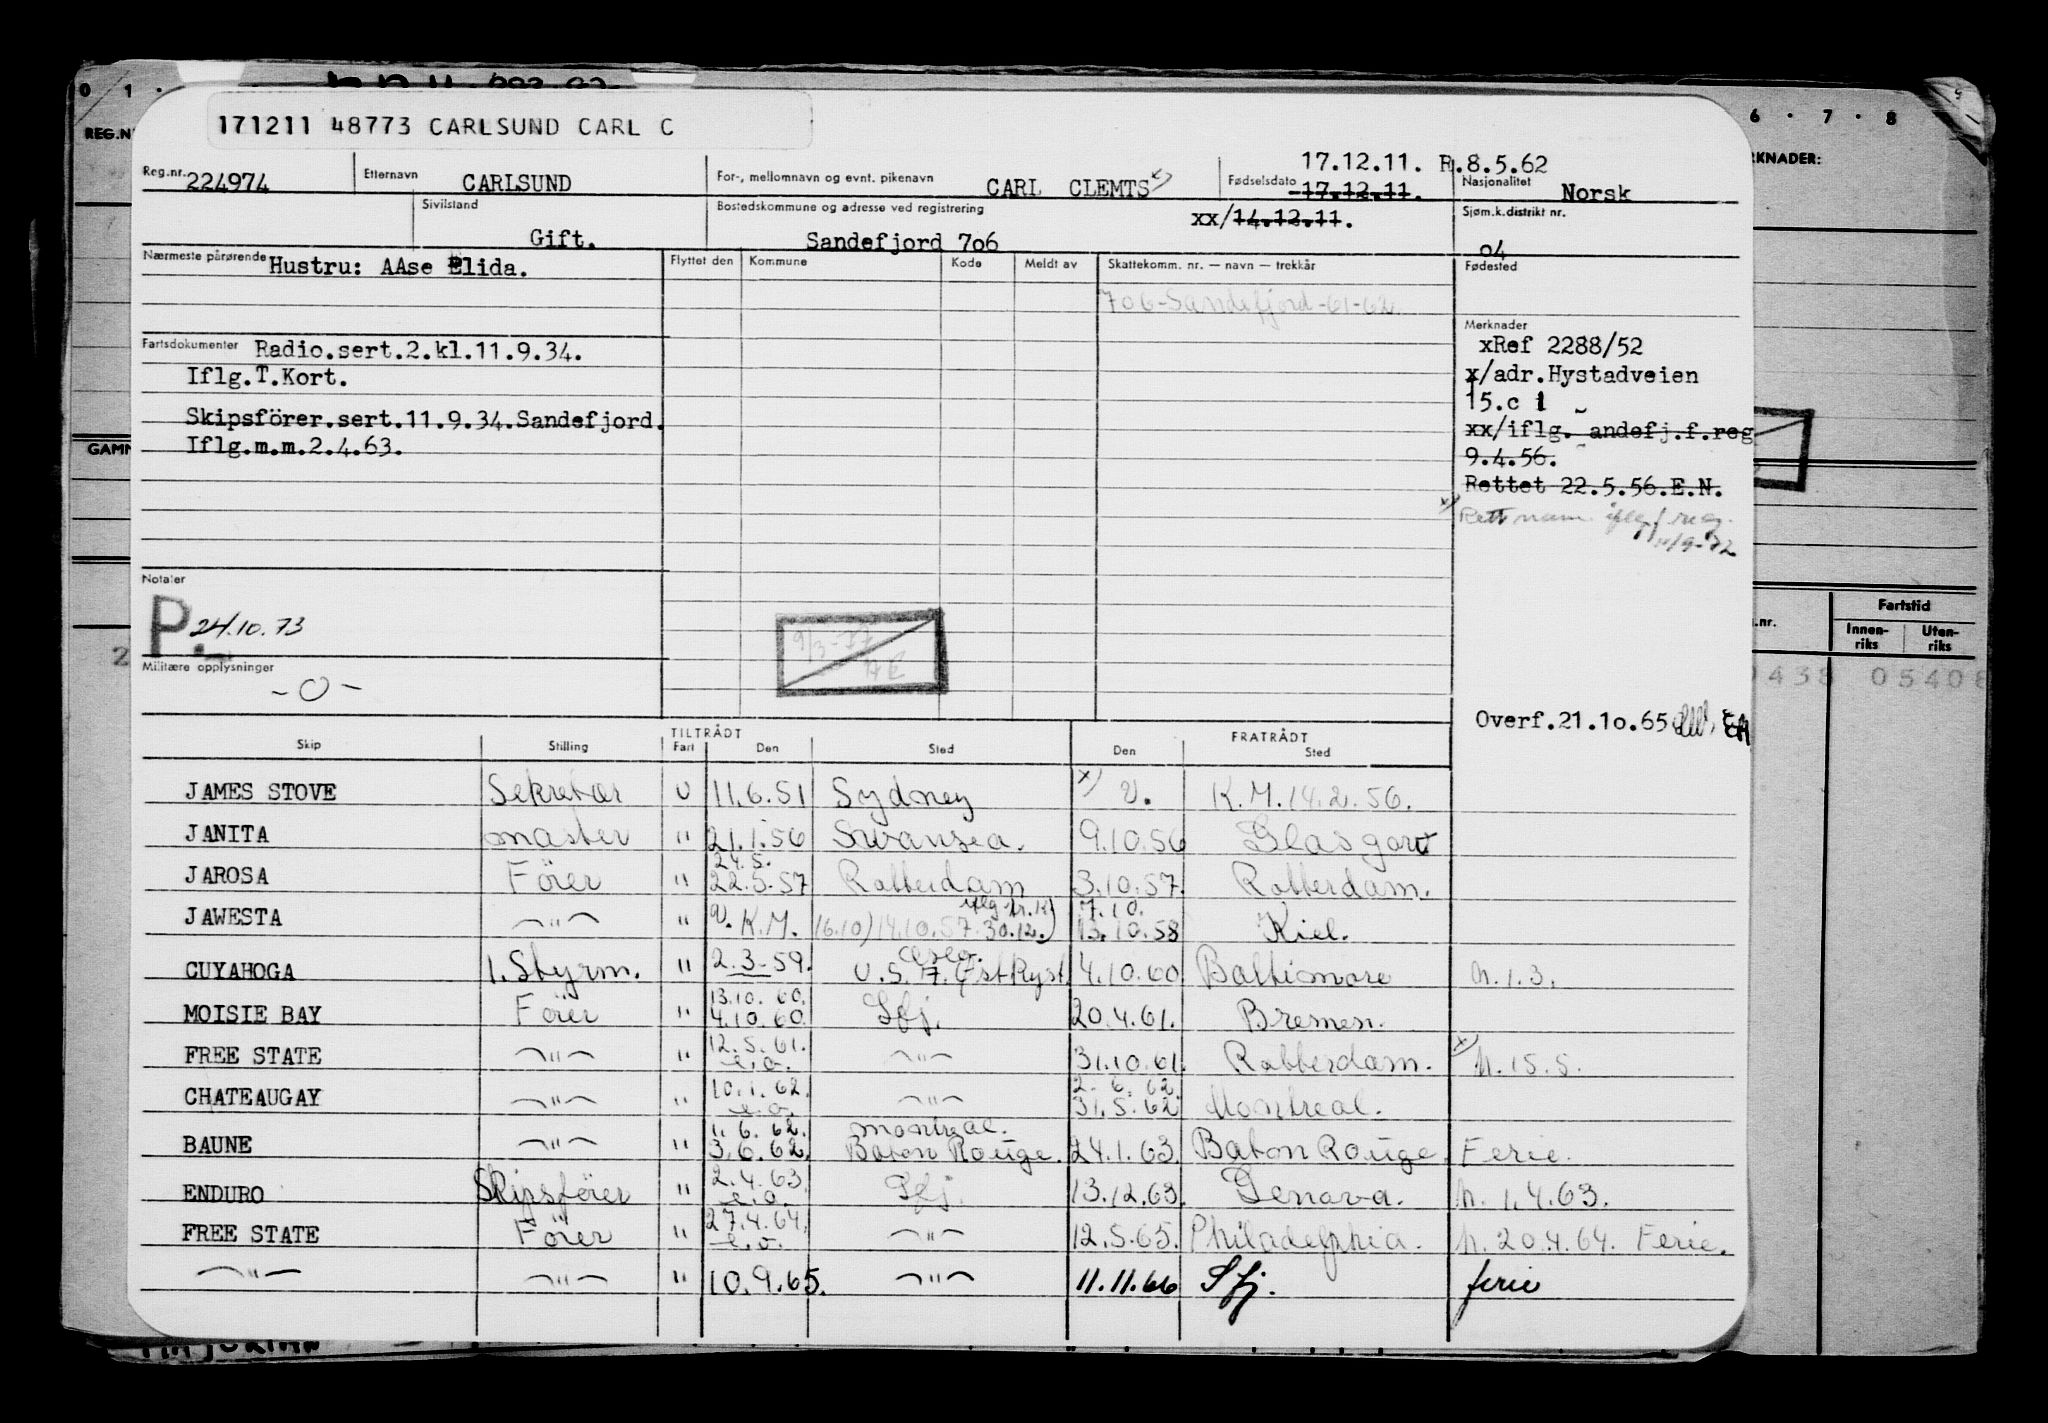 171211 48773 CARLSUND CARL C
17.12.11. R.8.5.62
Reg.nr. 224974 Etternavn CARLSUND For-, mellomnavn og evnt. pikenavn CARL CLEMTS x) Fødselsdato 17.12.11. Nasjonalitet Norsk
Sivilstand Gift. Bostedskommune og adresse ved registrering Sandefjord 706 xx/14.12.11. Sjøm.k.distrikt nr. 04
Nærmeste pårørende Hustru: AAse Elida. Flyttet den Kommune Kode Meldt av Skattekomm. nr. — navn — trekkår Fødested
706-Sandefjord-61-62
Merknader
Fartsdokumenter Radio.sert.2.kl.11.9.34. xRef 2288/52
Iflg.T.Kort. x/adr.Hystadveien
15.c
Skipsförer.sert.11.9.34.Sandefjord. xx/iflg. andefj.f.reg
Iflg.m.m.2.4.63. 9.4.56.
Rettet 22.5.56.E.N.
x) Rett nam. iflg f reg.
11/9-72
Notater
P. 24.10.73
9/3-77
Militære opplysninger
-0-
Overf.21.10.65 EA
TILTRÅDT FRATRÅDT
Skip Stilling Fart Den Sted Den Sted
JAMES STOVE Sekretær U 11.6.51 Sydney x) U. K.M. 14.2.56.
JANITA master " 21.1.56 Swansea. 9.10.56 Glasgow
24.5.
JAROSA Förer " 22.5.57 Rotterdam 3.10.57. Rotterdam.
7.10.
JAWESTA —"— " U. K.M. 16.10) 14.10.57. 30.12.) 13.10.58 Kiel.
CUYAHOGA 1. Styrm. " 2.3.59. Oslo. 4.10.60 Baltimore h.1.3.
13.10.60.
MOISIE BAY Förer " 4.10.60 Sfj. 20.4.61. Bremen.
12.5.61.
FREE STATE —"— " e.o. —"— 31.10.61 Rotterdam. x) h.15.5.
10.1.62. 2.6.62
CHATEAUGAY —"— " e.o. —"— 31.5.62 Montreal.
1.6.62. montreal.
BAUNE —"— " 3.6.62. Baton Rouge. 24.1.63. Baton Rouge. Ferie.
2.4.63.
ENDURO Skipsförer " e.o. Sfj. 13.12.63. Genova. h. 1.4.63.
27.4.64.
FREE STATE Förer " e.o. —"— 12.5.65. Philadelphia. h. 20.4.64. Ferie.
—"— —"— " 10.9.65. —"— 11.11.66 Sfj. ferie
0 1 .
REG.N
GAMM
6 . 7 . 8
RKNADER:
.nr. Fartstid
Innen-
riks
Uten-
riks
0438 05408
2